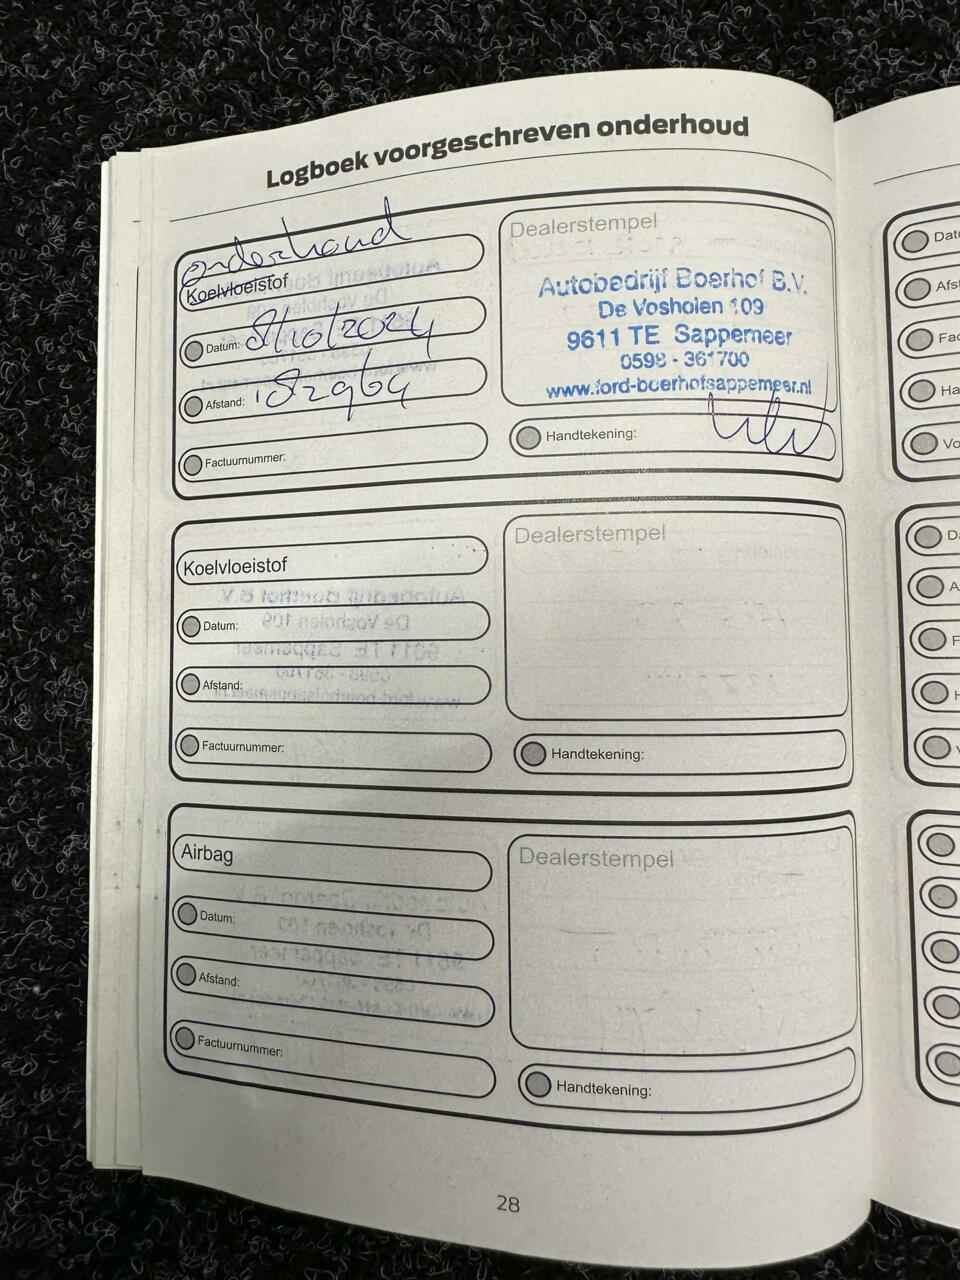 Logboek voorgeschreven onderhoud
onderhoud
Koelvloeistof
Datum: 8/10/2024
Afstand: 182964
Factuurnummer:
Dealerstempel
Autobedrijf Boerhof B.V.
De Vosholen 109
9611 TE Sappemeer
0598 - 361700
www.ford-boerhofsappemeer.nl
Handtekening:
Koelvloeistof
Datum:
Afstand:
Factuurnummer:
Dealerstempel
Handtekening:
Airbag
Datum:
Afstand:
Factuurnummer:
Dealerstempel
Handtekening:
28